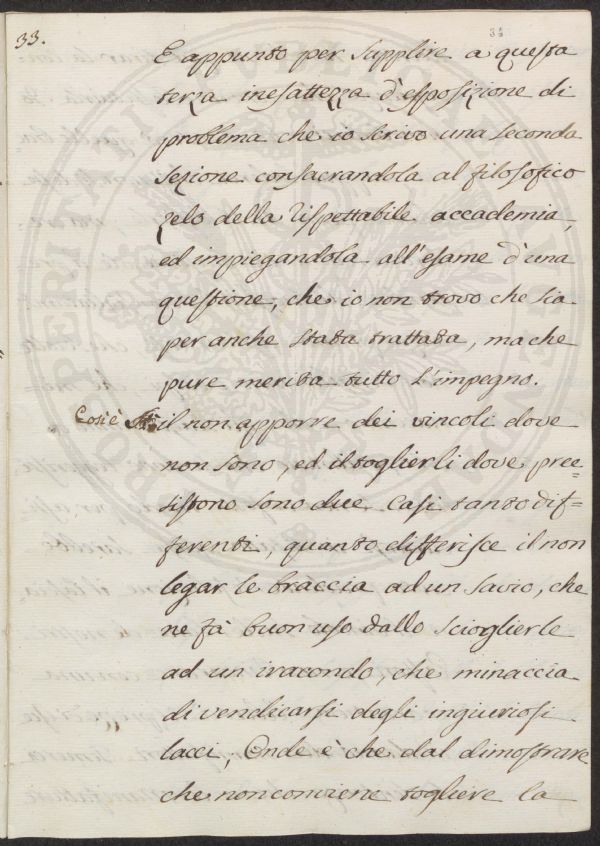 33.
34
E appunto per supplire a questa
terza inesattezza d'esposizione di
problema che io scrivo una seconda
sezione consacrandola al filosofico
zelo della rispettabile accademia,
ed impiegandola all'esame d'una
questione, che io non trovo che sia
per anche stata trattata, ma che
pure merita tutto l'impegno.
Cos'è il non apporre dei vincoli dove
non sono, ed il toglierli dove pree=
sistono sono due casi tanto dif=
ferenti, quanto differisce il non
legar le braccia ad un savio, che
ne fà buon uso dallo scioglierle
ad un iracondo, che minaccia
di vendecarsi degli ingiuriosi
lacci, Onde è che dal dimostrare
che non conviene togliere la